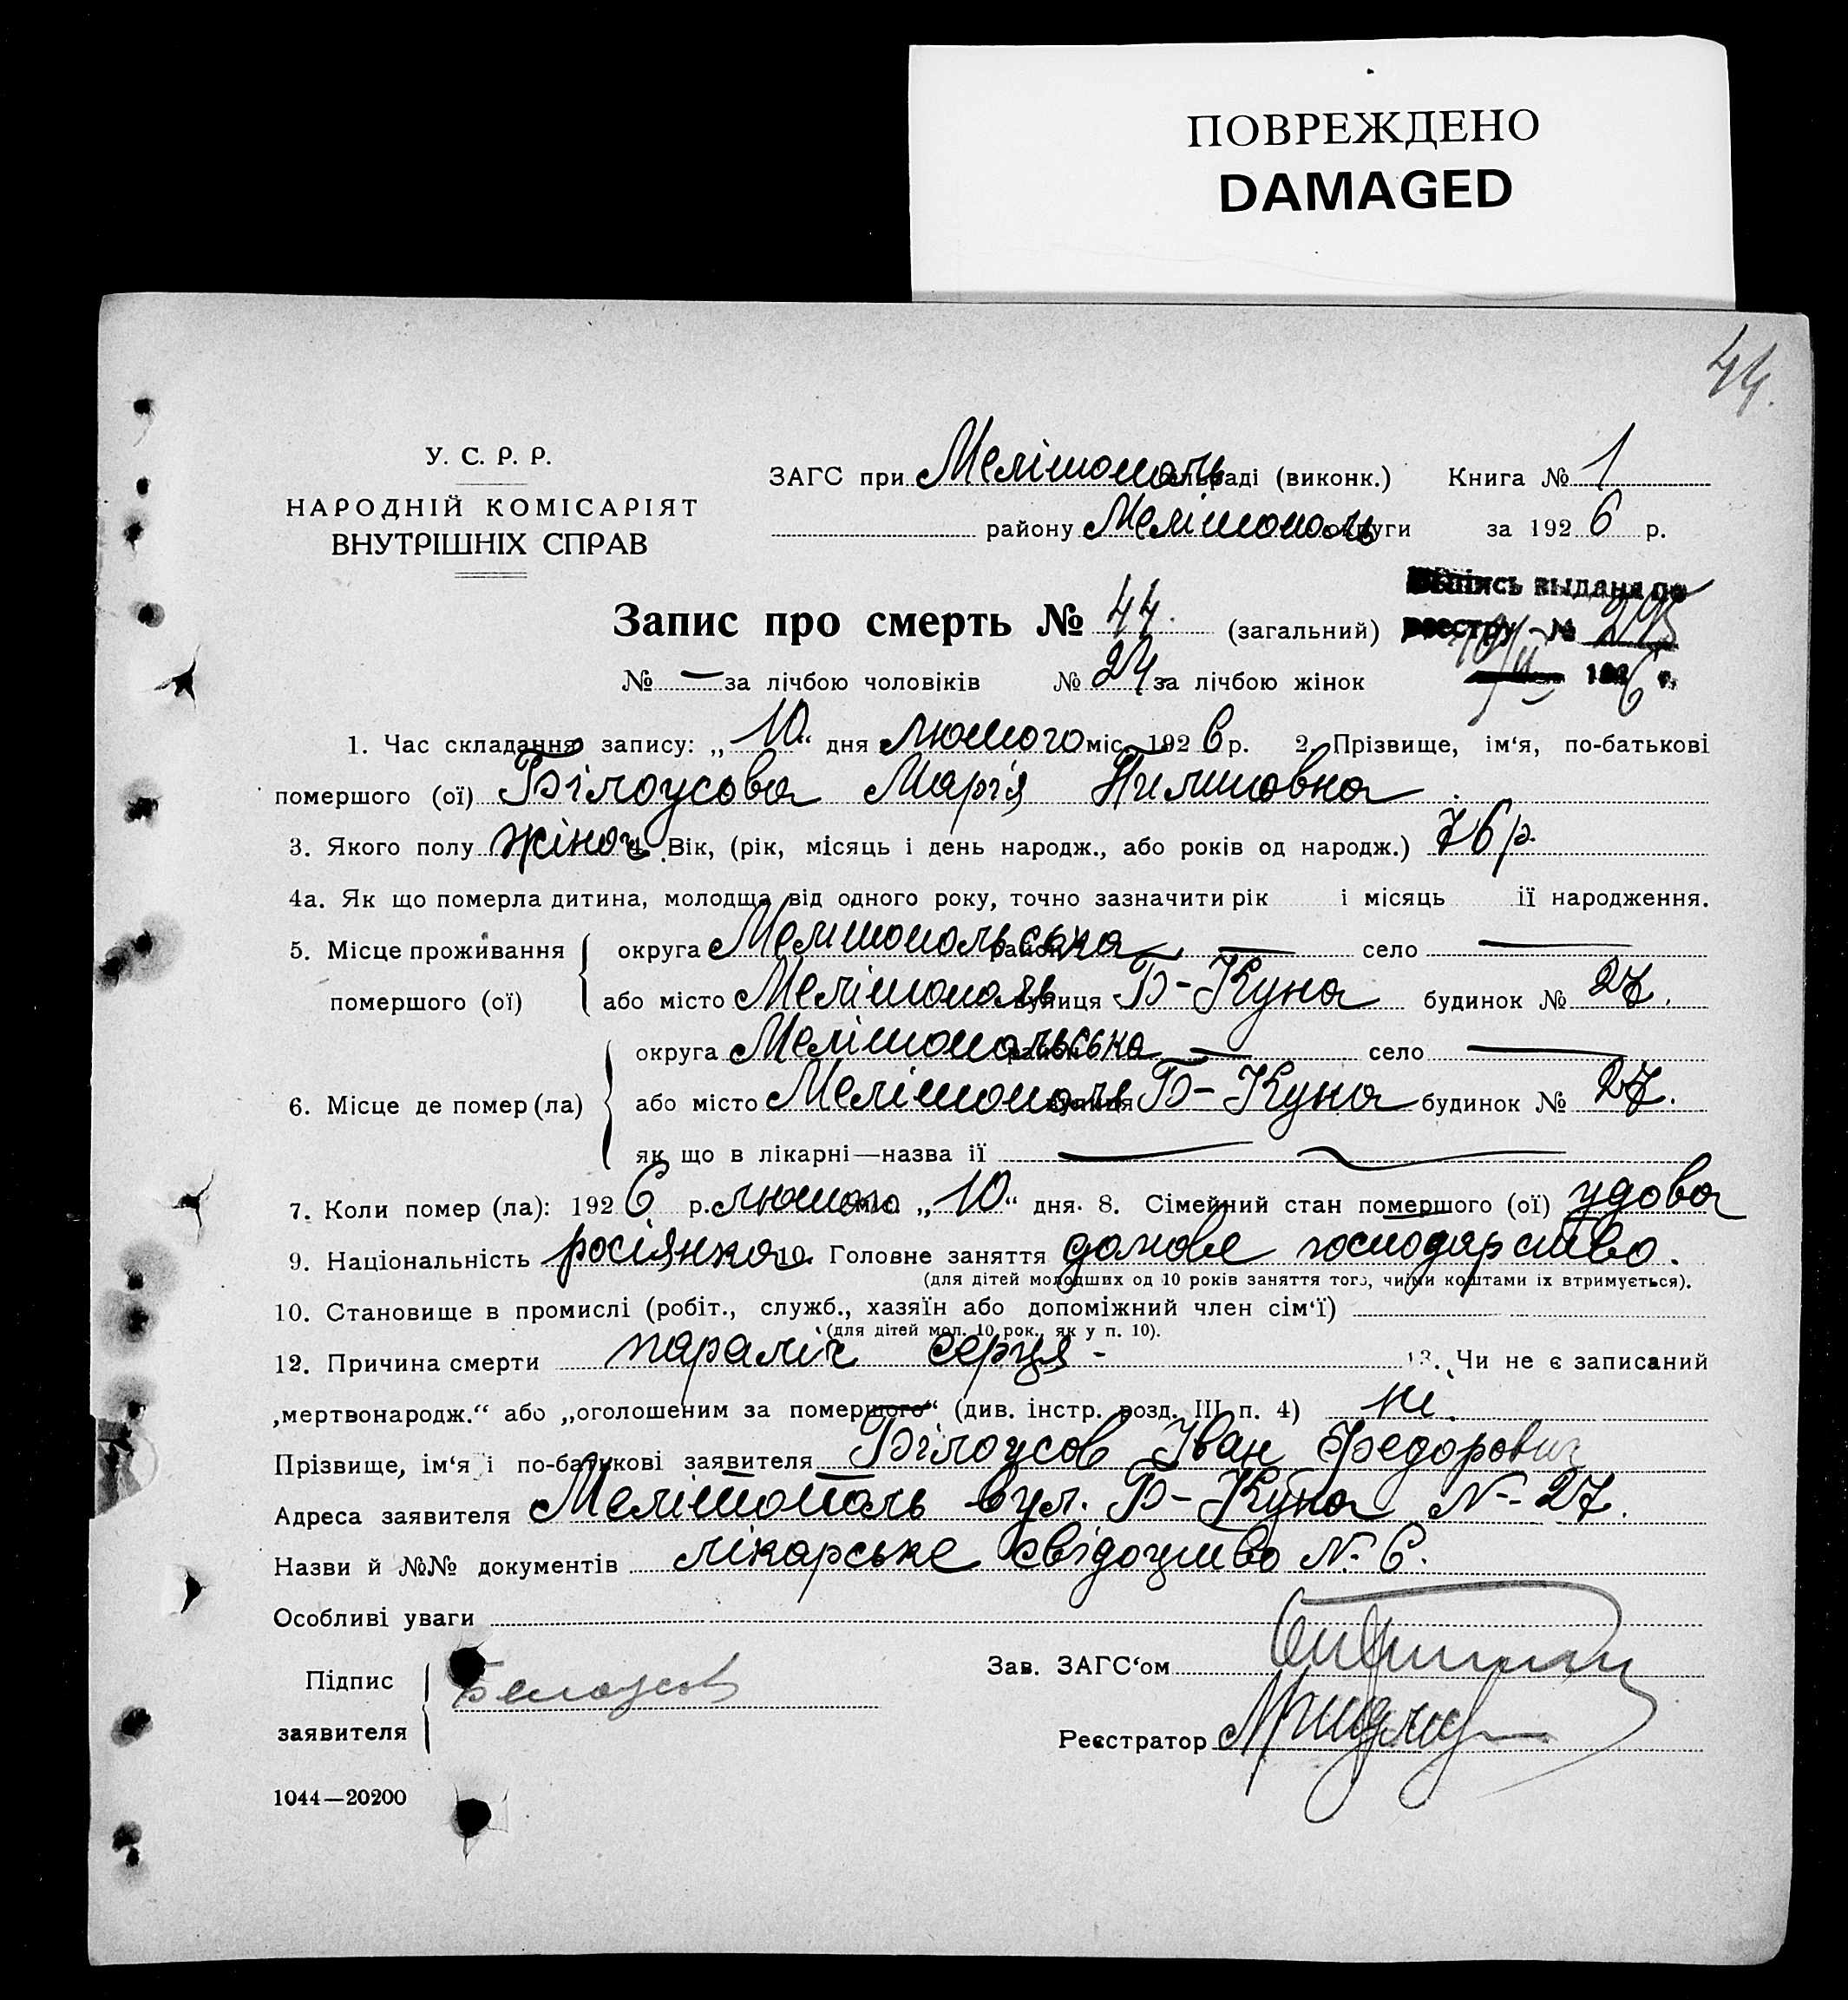 ПОВРЕЖДЕНО
DAMAGED
44.
У. С. Р. Р.
НАРОДНІЙ КОМІСАРІЯТ
ВНУТРІШНІХ СПРАВ
ЗАГС при Мелітополь сільраді (виконк.) Книга № 1
району Мелітополь округи за 1926 р.
Запис про смерть № 44. (загальний)
Выпись выдана по
реестру № 295
1926 г.
№ — за лічбою чоловіків № 24 за лічбою жінок
1. Час складання запису: „10“ дня лютого міс. 1926 р. 2. Прізвище, ім‘я, по-батькові
помершого (ої) Білоусова Марія Пилиповна
3. Якого полу жіноч 4. Вік, (рік, місяць і день народж., або років од народж.) 76 р.
4а. Як що померла дитина, молодща від одного року, точно зазначити рік і місяць її народження.
5. Місце проживання помершого (ої) округа Мелітопольська район — село —
або місто Мелітополь вулиця Б-Куна будинок № 27.
6. Місце де помер (ла) округа Мелітопольська район — село —
або місто Мелітополь вулиця Б-Куна будинок № 27.
як що в лікарні—назва її —
7. Коли помер (ла): 1926 р. лютого міс. „10“ дня. 8. Сімейний стан помершого (ої) удова
9. Національність росіянка 10. Головне заняття домове господарство.
(для дітей молодших од 10 років заняття того, чиїми коштами їх втримується).
10. Становище в промислі (робіт., служб., хазяїн або допоміжний член сім‘ї)
(для дітей мол. 10 рок., як у п. 10).
12. Причина смерти параліч серця - 13. Чи не є записаний
„мертвонародж.“ або „оголошеним за помершого“ (див. інстр. розд. III п. 4) ні.
Прізвище, ім‘я і по-батькові заявителя Білоусов Іван Федорович
Адреса заявителя Мелітополь вул. Б-Куна N- 27.
Назви й №№ документів лікарське свідоцтво N. 6.
Особливі уваги
Підпис заявителя Белоусов
Зав. ЗАГС‘ом
Реєстратор
1044—20200